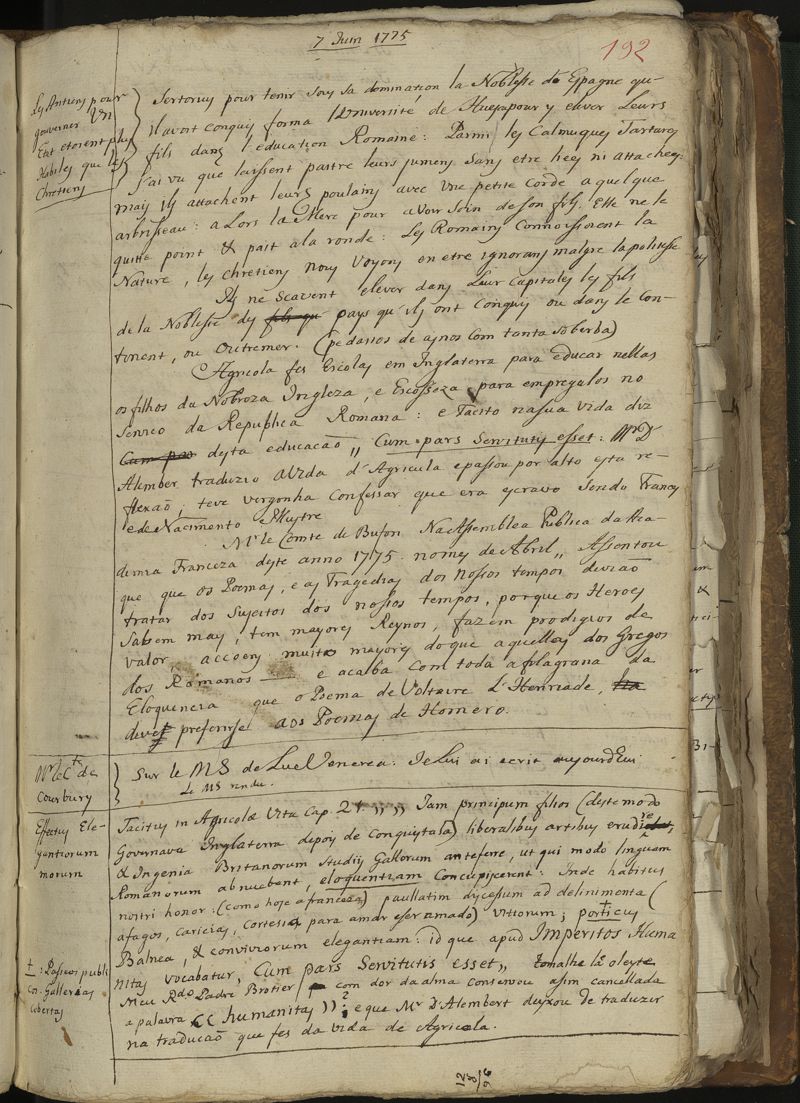 7 Juin 1775
192
Les Anciens pour
gouverner Un
Etat etoient plus
Habiles que les
Chretiens
Sertorius pour tenir sous sa domination la Noblesse de Espagne qu-
il avoit conquis forma l'Université de Huesca pour y elever Leurs
fils dans l'education Romaine: Parmi les Calmuques Tartares
J'ai vu que laissent paitre leurs jumens sans etre ni attachees
mais ils attachent leurs poulains avec Une petite corde a quelque
arbrisseau: a Lors la Mere pour avoir soin de son fils Elle ne le
quitte point & pait à la ronde: Les Romains connoissoient la
Nature, les Chretiens Nous Voyons en etre ignorans malgre la politesse
Ils ne Scavent elever dans Leur Capitales les fils
de la Noblesse des fils qu pays qu'ils ont conquis ou dans le Con-
tinent, ou Outremer. (pedassos de asnos com tanta soberba)
Agricola fes Escolas em Inglaterra para educar nellas
os filhos da Nobreza Ingleza, e Escosseza para empregalos no
Servico da Republica Romana: e Tacito na sua vida diz
Cum par desta educacaõ ,, Cum pars Servitutis esset: Mr D
Alember traduzio a Vida d'Agricula e passou por alto esta re-
flexaõ; teve vergonha confessar que era escravo sendo Frances
e de Nacimento Illustre
Mr le Comte de Bufon Na Assemblea Publica da Aca-
demia Franceza deste anno 1775 no mes de Abril ,, Assentou
que que os Poemas, e as Tragedias dos Nossos tempos deviaõ
tratar dos Sujeitos dos nossos tempos, porque os Heroes
Sabem mais, tem mayores Reynos, fazem prodigios de
valor, accoens muito mayores do que aquellas dos Gregos
dos Romanos e acaba com toda a filagrana da
Eloquencia que o Poema de Voltaire L'Henriade,
deve preferirse aos Poemas de Homero.
Mr le Cte de
Courbury
Sur le MS de Lue Venerea. Je Lui ai ecrit aujourdEui
Le MS rendu.
Effectus Ele-
gantiorum
morum
Tacitus in Agricolæ Vita Cap. 21 ,, ,, Jam principum filios (deste modo
Governava Inglaterra depois de Conquistala) liberalibus artibus erudire,
& Ingenia Britanorum Studiis Gallorum anteferre, ut qui modo linguam
Romanorum abnuebant, eloquentiam Concupiscerent: Inde habitus
nostri honor: (como hoje a franceza) paullatim discessum ad delinimenta (
afagos, caricias, cortesia para amar e ser amado) vitiorum; porticus †
Balnea, & conviviorum elegantiam: id que apud IMPERITOS Huma
nitas vocabatur, Cum pars Servitutis esset ,, tomalhe la oleyte
Meu Rdo Padre Brotier com dor da alma conservou asim cancellada
a palavra (( humanitas )): e que Mr D'Alembert deixou de traduzir
na traducaõ que fes da vida de Agricola.
† : Paseos publi
cos. Gallerias
cobertas
12
8
96